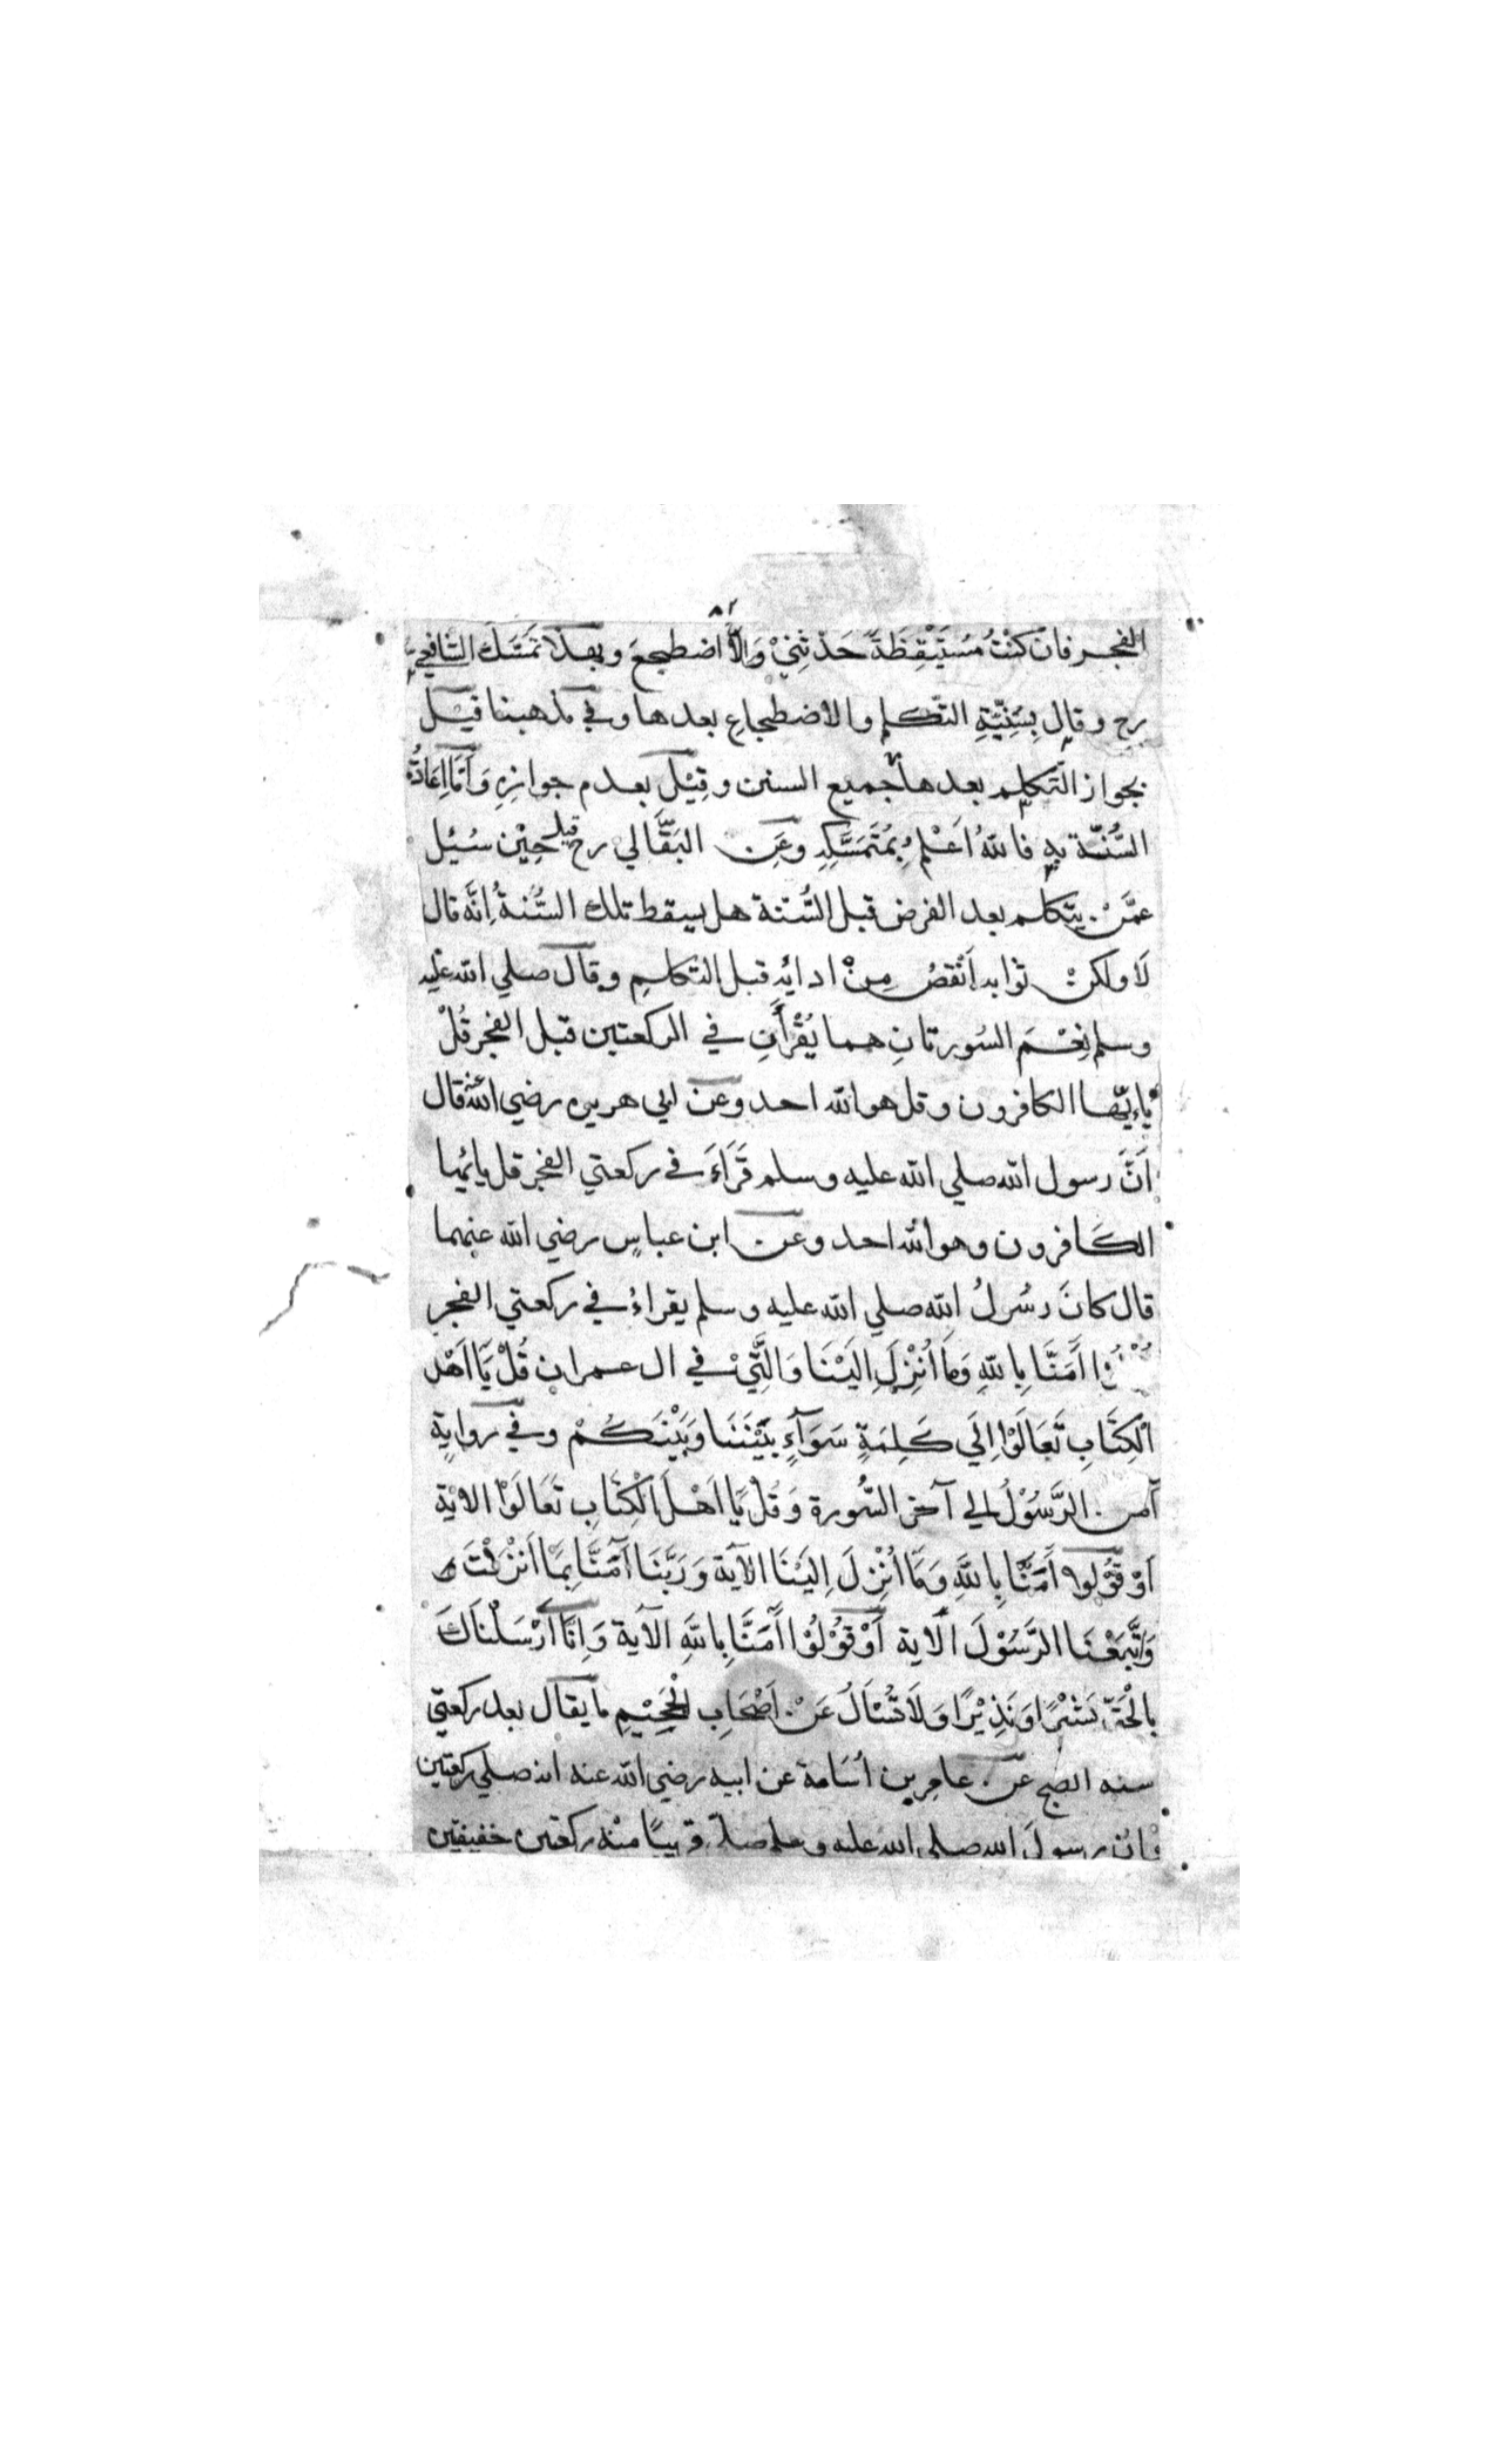 ٨٢
الفجر فان كنْتُ مُسْتَيْقِظَةً حَدثَنِيْ وَاِلَّا اضطجعَ وبهذا تَمَسَّكَ الشافعِيُّ
رح وقال بِسُنِّيَّةِ التكلم والاضطجاعِ بعدها وفي مذهبنا قيْل
بجواز التكلم بعدها جميع السنن وقِيْلَ بعدم جوازِهِ وَاَمَّا اِعَادَةُ
السُّنّة بهِ فاللهُ اَعْلَمُ بِمُتَمَسَّكِهِ وعَنِ البَقَّالي رح قيل حِيْن سُئِل
عمَّنْ يتكلم بعد الفرض قبل السُّنة هل يسقط تلك السُّنةُ اِنَّه قال
لَا ولكنْ ثوابه اَنْقصُ مِنْ ادائهِ قبل التكلمِ وقال صلي الله عليه
وسلم نِعْمَ السُورتانِ هما يُقْرَأَنِ في الركعتين قبل الفجر قُلْ
يٰاَيُّهَا الكافرون وقل هو الله احد وعن ابي هريره رضي الله عنه قال
اَنَّ رسول الله صلي الله عليه وسلم قَرَاَءَ في ركعتي الفجر قل يايُها
الكَافرون وهو الله احد وعن ابن عباسٍ رضي الله عنهما
قال كانَ رسُولُ الله صلي الله عليه وسلم يقراءُ في ركعتي الفجر
اٰمَنَّا بِاللهِ وَمَا اُنْزِلَ اِلَيْنَا وَالَّتِيْ في ال عمران قُلْ يَا اَهْلَ
الْكِتَابِ تَعَالَوْا اِلَي كَلِمَةٍ سَوَآءٍ بَيْنَنَا وَبَيْنَكُمْ وفي روايةٍ
آمن الرَّسُوْلُ الي آخر السُّورة وَقُلْ يَا اَهْلَ الْكِتَابِ تَعَالَوْا الاية
اَوْ قُوْلوا اٰمَنَّا بِاللهِ وَمَا اُنْزِلَ اِلَيْنَا الآيَة وَرَبَّنَا آمَنَّا بِمَا اَنْزَلْتَ
وَاتَّبَعْنَا الرَّسُوْلَ الاية اَوْ قُوْلُوْا اٰمَنَّا بِاللهِ الآية وَاِنَّا اَرْسَلْنَاكَ
بِالْحَقِّ بَشِيْرًا وَنَذِيْرًا وَلَا تُسْئَالُ عَنْ اَصْحَابِ الْجَحِيْمِ ما يقال بعد ركعتي
سنه الصبح عن عامِر بن اُسَامة عن ابيه رضي الله عنه انه صلي ركعتين
وان رسولَ الله صلي الله عليه وسلم صلّي قريبًا منْه ركعتين خفيفتين